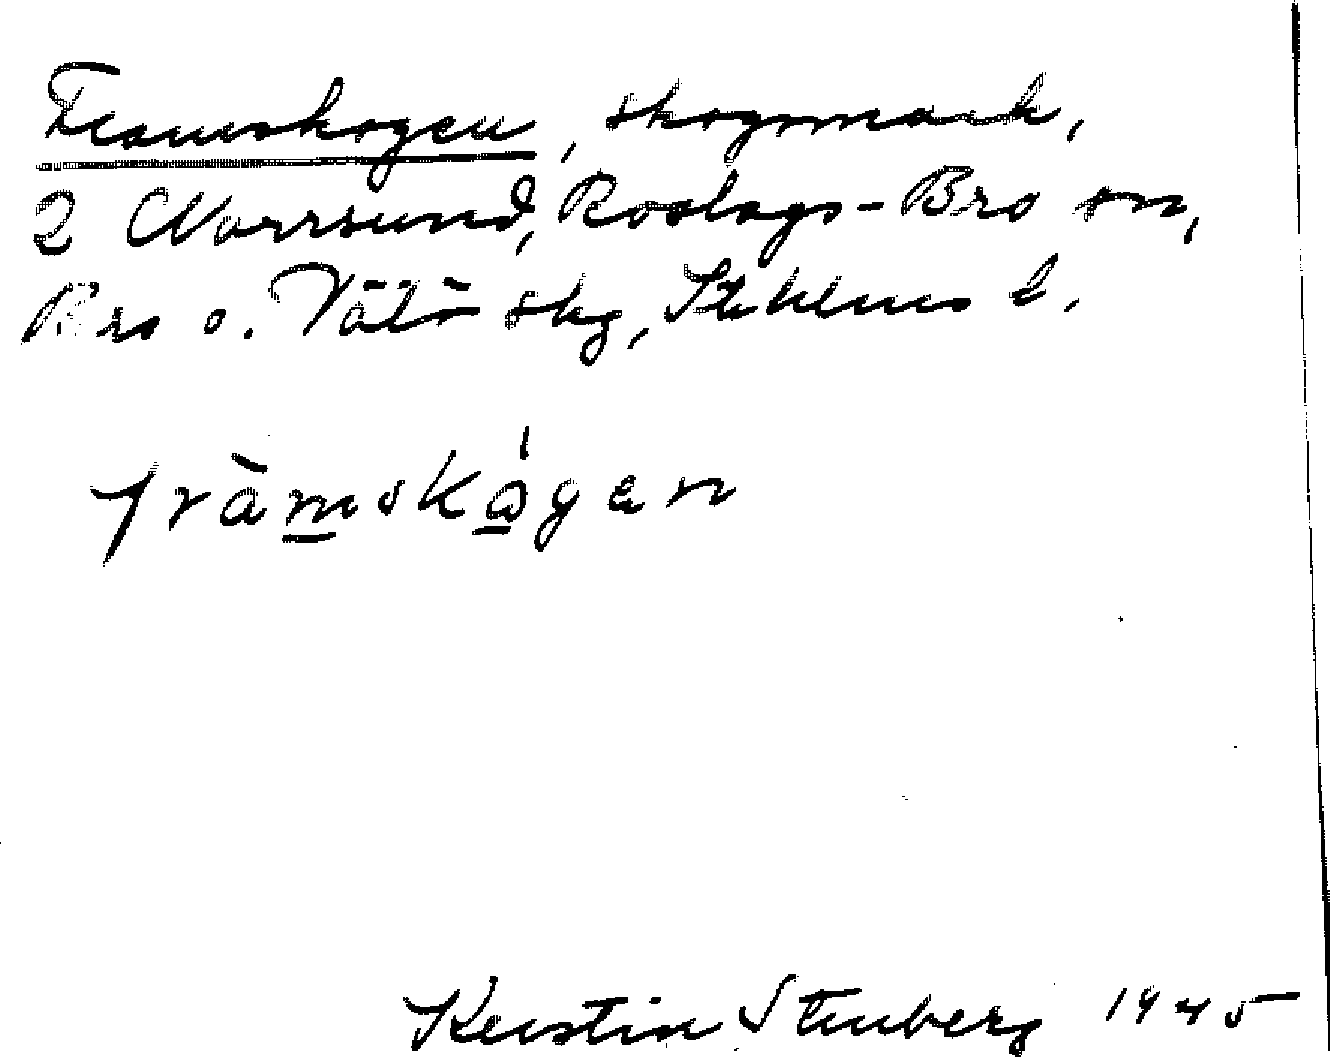 Framskogen, skogsmark,
2 Norrsund, Roslags-Bro sn,
Bro o. Vätö skg, Sthlms l.
fràmskógen
Kerstin Stenberg 1945